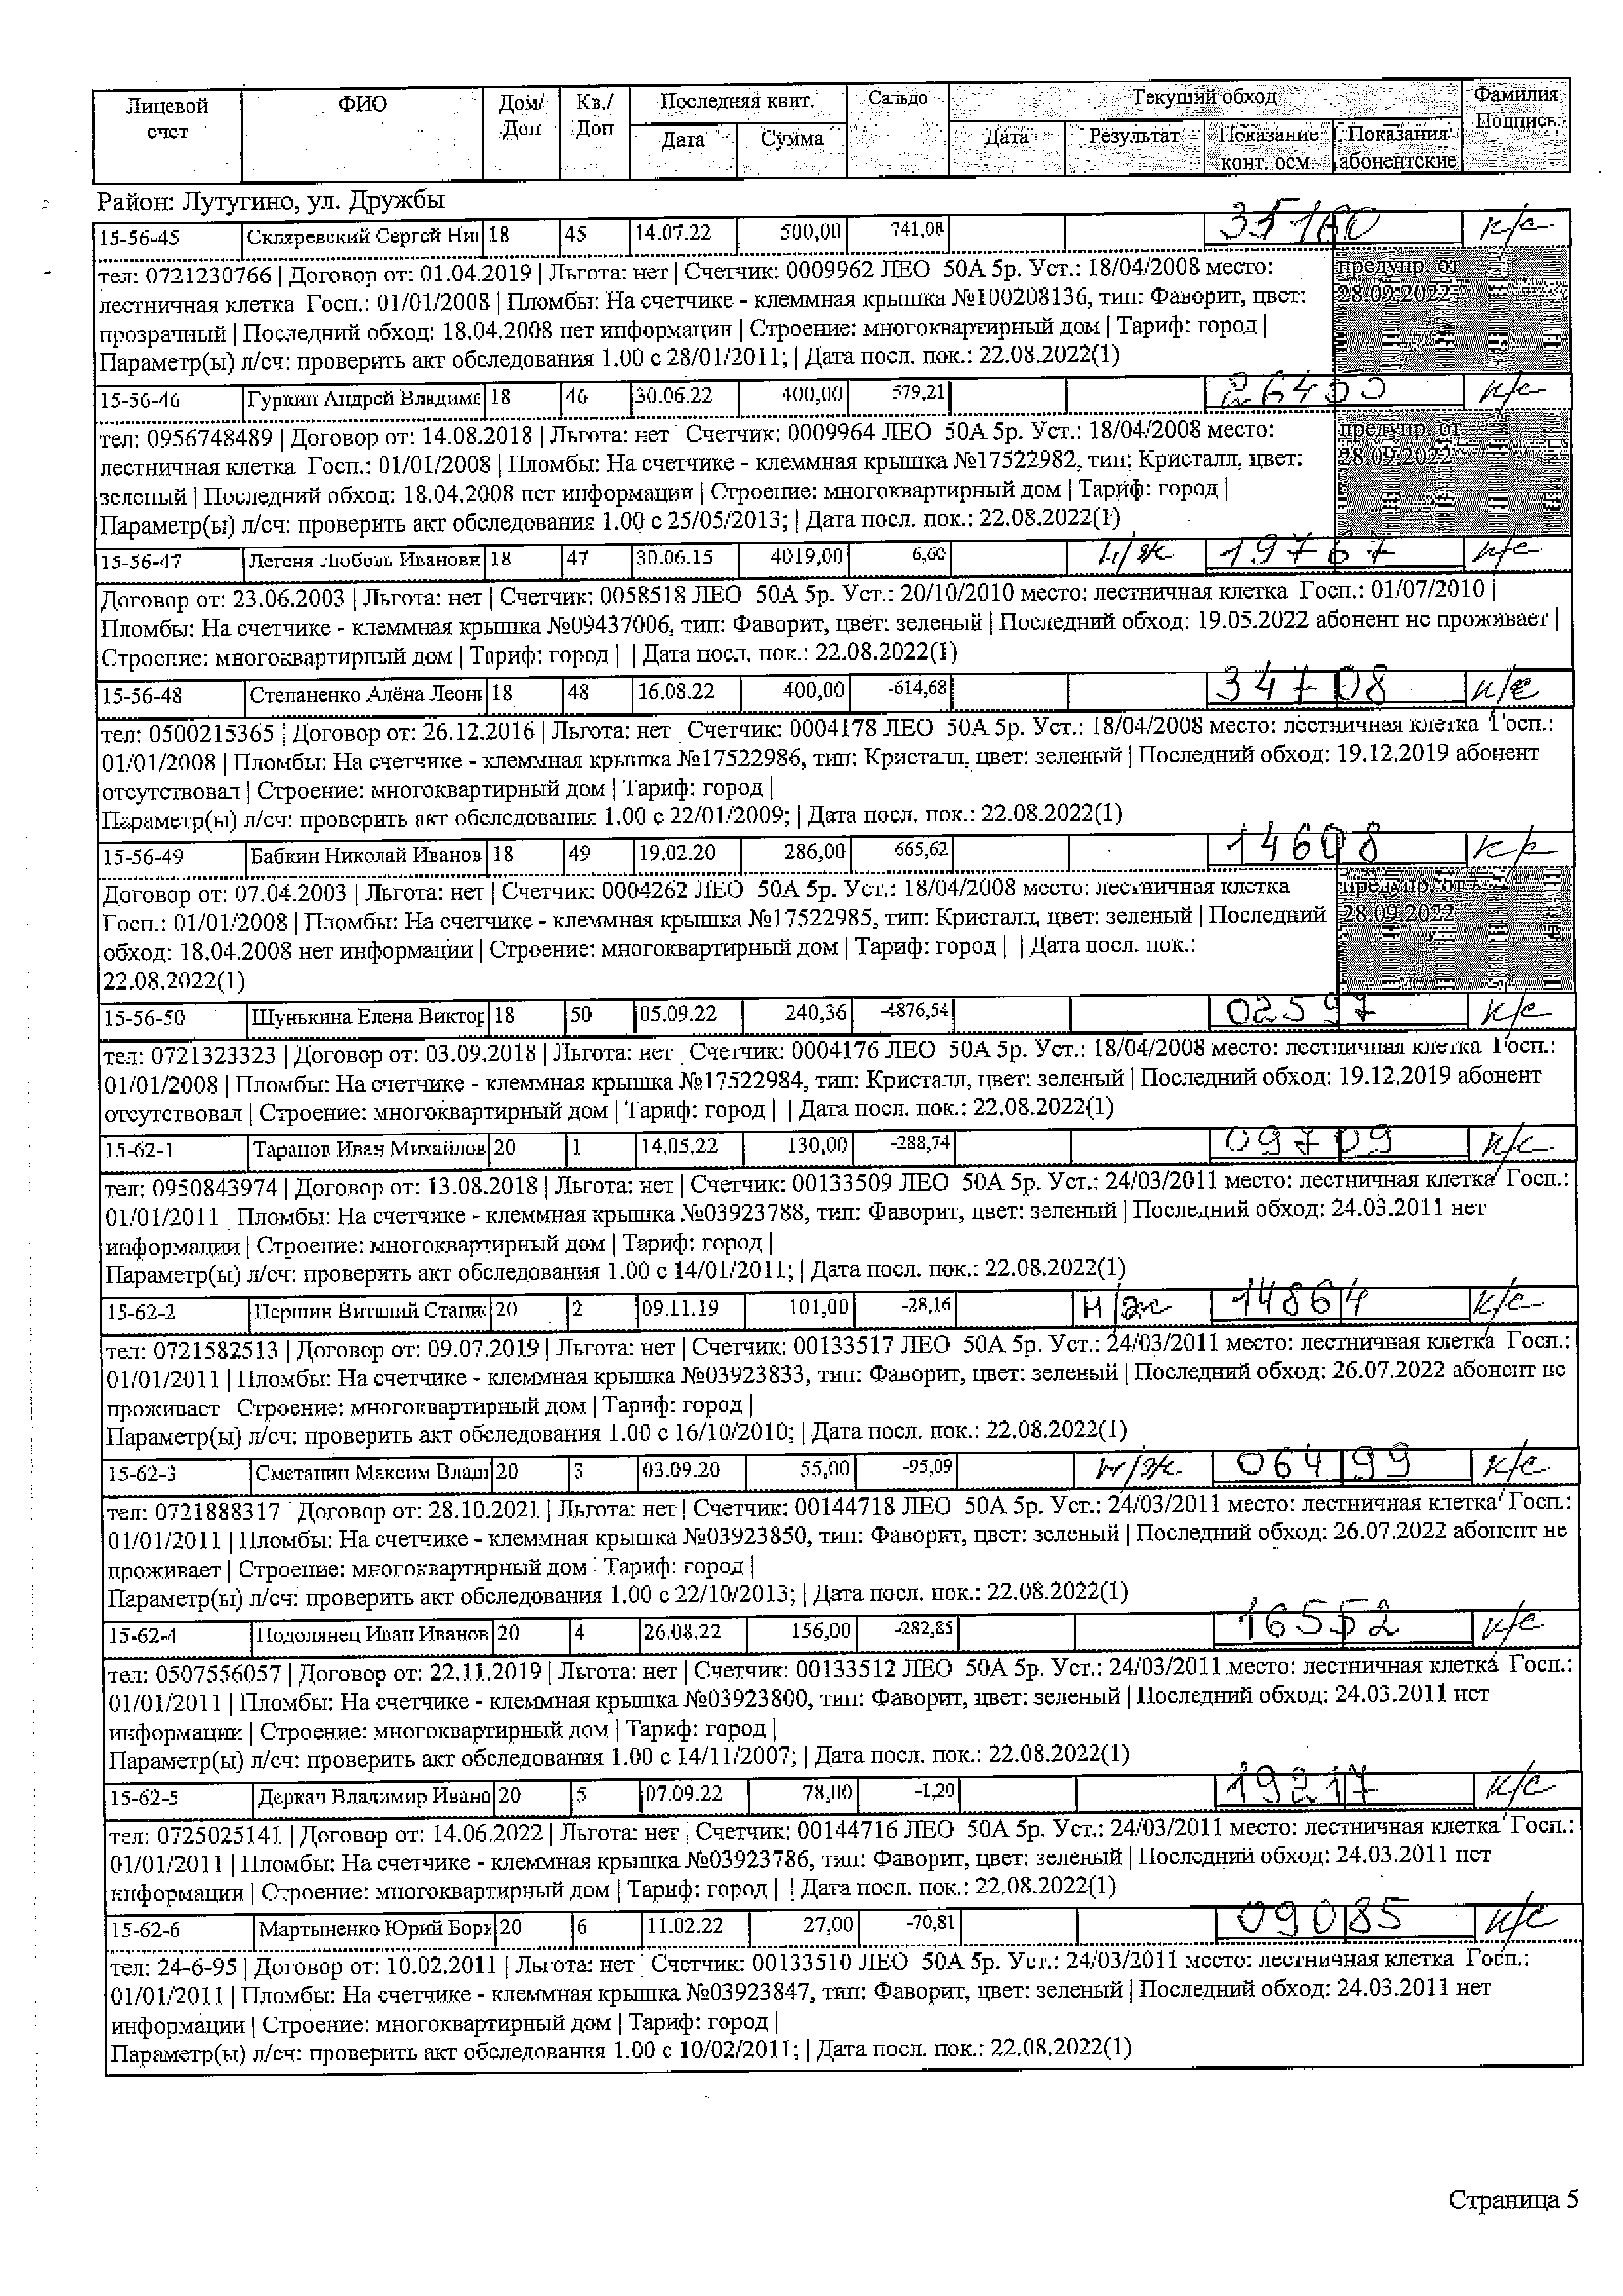 Лицевой счет ФИО Дом/ Доп Кв./ Доп Последняя квит. Дата Сумма Сальдо Текущий обход Дата Результат Показание конт. осм. Показания абонентские Фамилия Подпись
Район: Лутугино, ул. Дружбы
15-56-45 Скляревский Сергей Ни 18 45 14.07.22 500,00 741,08 35160 к/с
тел: 0721230766 | Договор от: 01.04.2019 | Льгота: нет | Счетчик: 0009962 ЛЕО 50А 5р. Уст.: 18/04/2008 место: предупр. от
лестничная клетка Госп.: 01/01/2008 | Пломбы: На счетчике - клеммная крышка №100208136, тип: Фаворит, цвет: 28.09.2022
прозрачный | Последний обход: 18.04.2008 нет информации | Строение: многоквартирный дом | Тариф: город |
Параметр(ы) л/сч: проверить акт обследования 1.00 с 28/01/2011; | Дата посл. пок.: 22.08.2022(1)
15-56-46 Гуркин Андрей Владиме 18 46 30.06.22 400,00 579,21 26450 к/с
тел: 0956748489 | Договор от: 14.08.2018 | Льгота: нет | Счетчик: 0009964 ЛЕО 50А 5р. Уст.: 18/04/2008 место: предупр. от
лестничная клетка Госп.: 01/01/2008 | Пломбы: На счетчике - клеммная крышка №17522982, тип: Кристалл, цвет: 28.09.2022
зеленый | Последний обход: 18.04.2008 нет информации | Строение: многоквартирный дом | Тариф: город |
Параметр(ы) л/сч: проверить акт обследования 1.00 с 25/05/2013; | Дата посл. пок.: 22.08.2022(1)
15-56-47 Легеня Любовь Ивановн 18 47 30.06.15 4019,00 6,60 н/ж 19767 к/с
Договор от: 23.06.2003 | Льгота: нет | Счетчик: 0058518 ЛЕО 50А 5р. Уст.: 20/10/2010 место: лестничная клетка Госп.: 01/07/2010 |
Пломбы: На счетчике - клеммная крышка №09437006, тип: Фаворит, цвет: зеленый | Последний обход: 19.05.2022 абонент не проживает |
Строение: многоквартирный дом | Тариф: город | | Дата посл. пок.: 22.08.2022(1)
15-56-48 Степаненко Алёна Леони 18 48 16.08.22 400,00 -614,68 34708 к/с
тел: 0500215365 | Договор от: 26.12.2016 | Льгота: нет | Счетчик: 0004178 ЛЕО 50А 5р. Уст.: 18/04/2008 место: лестничная клетка Госп.:
01/01/2008 | Пломбы: На счетчике - клеммная крышка №17522986, тип: Кристалл, цвет: зеленый | Последний обход: 19.12.2019 абонент
отсутствовал | Строение: многоквартирный дом | Тариф: город |
Параметр(ы) л/сч: проверить акт обследования 1.00 с 22/01/2009; | Дата посл. пок.: 22.08.2022(1)
15-56-49 Бабкин Николай Иванов 18 49 19.02.20 286,00 665,62 14608 к/с
Договор от: 07.04.2003 | Льгота: нет | Счетчик: 0004262 ЛЕО 50А 5р. Уст.: 18/04/2008 место: лестничная клетка предупр. от
Госп.: 01/01/2008 | Пломбы: На счетчике - клеммная крышка №17522985, тип: Кристалл, цвет: зеленый | Последний 28.09.2022
обход: 18.04.2008 нет информации | Строение: многоквартирный дом | Тариф: город | | Дата посл. пок.:
22.08.2022(1)
15-56-50 Шунькина Елена Виктор 18 50 05.09.22 240,36 -4876,54 02597 к/с
тел: 0721323323 | Договор от: 03.09.2018 | Льгота: нет | Счетчик: 0004176 ЛЕО 50А 5р. Уст.: 18/04/2008 место: лестничная клетка Госп.:
01/01/2008 | Пломбы: На счетчике - клеммная крышка №17522984, тип: Кристалл, цвет: зеленый | Последний обход: 19.12.2019 абонент
отсутствовал | Строение: многоквартирный дом | Тариф: город | | Дата посл. пок.: 22.08.2022(1)
15-62-1 Таранов Иван Михайлов 20 1 14.05.22 130,00 -288,74 09709 к/с
тел: 0950843974 | Договор от: 13.08.2018 | Льгота: нет | Счетчик: 00133509 ЛЕО 50А 5р. Уст.: 24/03/2011 место: лестничная клетка Госп.:
01/01/2011 | Пломбы: На счетчике - клеммная крышка №03923788, тип: Фаворит, цвет: зеленый | Последний обход: 24.03.2011 нет
информации | Строение: многоквартирный дом | Тариф: город |
Параметр(ы) л/сч: проверить акт обследования 1.00 с 14/01/2011; | Дата посл. пок.: 22.08.2022(1)
15-62-2 Першин Виталий Станис 20 2 09.11.19 101,00 -28,16 н/ж 14864 к/с
тел: 0721582513 | Договор от: 09.07.2019 | Льгота: нет | Счетчик: 00133517 ЛЕО 50А 5р. Уст.: 24/03/2011 место: лестничная клетка Госп.:
01/01/2011 | Пломбы: На счетчике - клеммная крышка №03923833, тип: Фаворит, цвет: зеленый | Последний обход: 26.07.2022 абонент не
проживает | Строение: многоквартирный дом | Тариф: город |
Параметр(ы) л/сч: проверить акт обследования 1.00 с 16/10/2010; | Дата посл. пок.: 22.08.2022(1)
15-62-3 Сметанин Максим Влади 20 3 03.09.20 55,00 -95,09 н/ж 06499 к/с
тел: 0721888317 | Договор от: 28.10.2021 | Льгота: нет | Счетчик: 00144718 ЛЕО 50А 5р. Уст.: 24/03/2011 место: лестничная клетка Госп.:
01/01/2011 | Пломбы: На счетчике - клеммная крышка №03923850, тип: Фаворит, цвет: зеленый | Последний обход: 26.07.2022 абонент не
проживает | Строение: многоквартирный дом | Тариф: город |
Параметр(ы) л/сч: проверить акт обследования 1.00 с 22/10/2013; | Дата посл. пок.: 22.08.2022(1)
15-62-4 Подолянец Иван Иванов 20 4 26.08.22 156,00 -282,85 16552 к/с
тел: 0507556057 | Договор от: 22.11.2019 | Льгота: нет | Счетчик: 00133512 ЛЕО 50А 5р. Уст.: 24/03/2011 место: лестничная клетка Госп.:
01/01/2011 | Пломбы: На счетчике - клеммная крышка №03923800, тип: Фаворит, цвет: зеленый | Последний обход: 24.03.2011 нет
информации | Строение: многоквартирный дом | Тариф: город |
Параметр(ы) л/сч: проверить акт обследования 1.00 с 14/11/2007; | Дата посл. пок.: 22.08.2022(1)
15-62-5 Деркач Владимир Ивано 20 5 07.09.22 78,00 -1,20 19217 к/с
тел: 0725025141 | Договор от: 14.06.2022 | Льгота: нет | Счетчик: 00144716 ЛЕО 50А 5р. Уст.: 24/03/2011 место: лестничная клетка Госп.:
01/01/2011 | Пломбы: На счетчике - клеммная крышка №03923786, тип: Фаворит, цвет: зеленый | Последний обход: 24.03.2011 нет
информации | Строение: многоквартирный дом | Тариф: город | | Дата посл. пок.: 22.08.2022(1)
15-62-6 Мартыненко Юрий Бори 20 6 11.02.22 27,00 -70,81 09085 к/с
тел: 24-6-95 | Договор от: 10.02.2011 | Льгота: нет | Счетчик: 00133510 ЛЕО 50А 5р. Уст.: 24/03/2011 место: лестничная клетка Госп.:
01/01/2011 | Пломбы: На счетчике - клеммная крышка №03923847, тип: Фаворит, цвет: зеленый | Последний обход: 24.03.2011 нет
информации | Строение: многоквартирный дом | Тариф: город |
Параметр(ы) л/сч: проверить акт обследования 1.00 с 10/02/2011; | Дата посл. пок.: 22.08.2022(1)
Страница 5